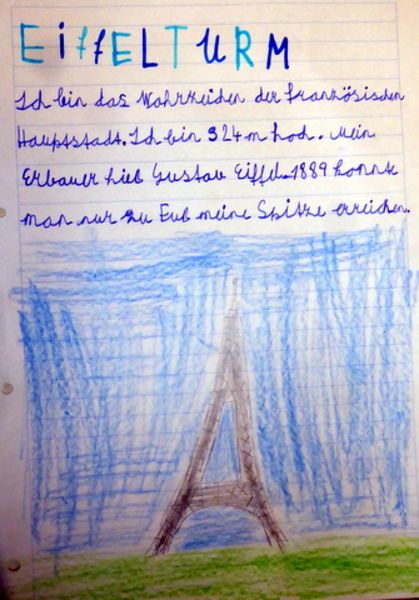 EiffELTURM
Ich bin das Wahrzeichen der französischen
Hauptstadt. Ich bin 324 m hoch. Mein
Erbauer hieß Gustav Eiffel. 1889 konnte
man nur zu Fuß meine Spitze erreichen.